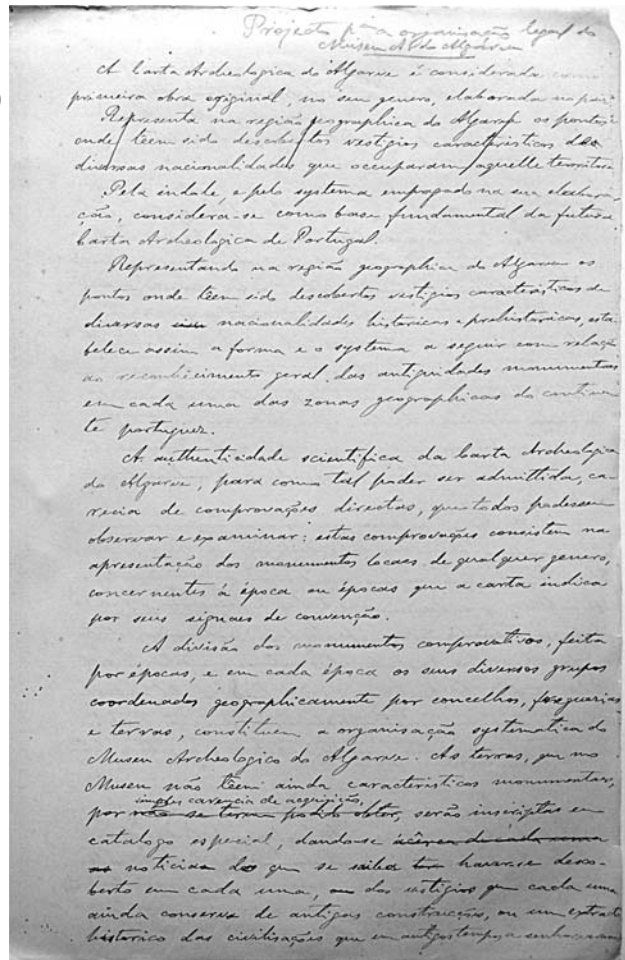 Projecto para a organisação legal do
Museu A. do Algarve
A Carta Archeologica do Algarve é considerada como
primeira obra original, no seu genero, elaborada no paiz
Representa na região geographica do Algarve os pontos
onde teem sido descobertos vestigios caracteristicos das
diversas nacionalidades que occuparam aquelle territorio
Pela indole, e pelo systema empregado na sua elabora-
ção, considera-se como base fundamental da futura
Carta Archeologica de Portugal.
Representando na região geographica do Algarve os
pontos onde teem sido descobertos vestigios caracteristicos de
diversas nacionalidades historicas e prehistoricas, esta-
belece assim a forma e o systema a seguir com relação
ao reconhecimento geral das antiguidades monumentaes
em cada uma das zonas geographicas do continen
te portuguez.
A authenticidade scientifica da Carta Archeologica
do Algarve, para como tal poder ser admittida, ca-
recia de comprovações directas, que todos podessem
observar e examinar: estas comprovações consistem na
apresentação dos monumentos locaes de qualquer genero,
concernentes á época ou épocas que a carta indica
por seus signaes de convenção.
A divisão dos monumentos comprovativos, feita
por épocas, e em cada época os seus diversos grupos
coordenados geographicamente por concelhos, freguezias
e terras, constituem a organisação systematica do
Museu Archeologico do Algarve. As terras, que no
Museu não teem ainda caracteristicos monumentaes,
simples carencia de acquisição,
por não se terem podido obter, serão inscriptas em
catalogo especial, dando-se ácerca de cada uma
noticias do que se saiba haver-se desco-
berto em cada uma, ou dos vestigios que cada uma
ainda conserva de antigas construcções, ou um extracto
historico das civilisações que em antigos tempos a senhorearam